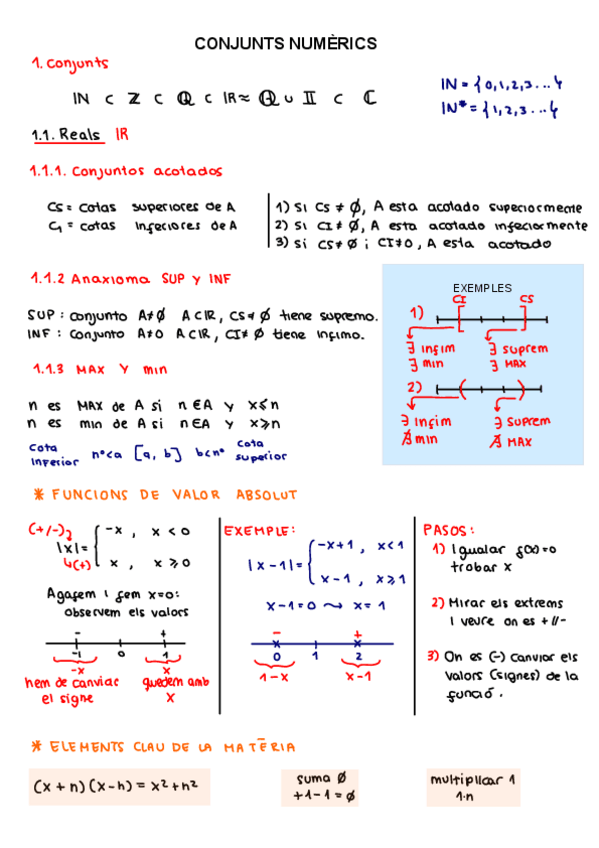 CONJUNTS NUMÈRICS
1. Conjunts
IN ⊂ Z ⊂ Q ⊂ IR ≈ Q ∪ II ⊂ C
IN = {0,1,2,3...}
IN* = {1,2,3...}
1.1. Reals IR
1.1.1. Conjuntos acotados
Cs = cotas superiores de A
CI = cotas inferiores de A
1) Si Cs ≠ Ø, A esta acotado superiormente
2) Si CI ≠ Ø, A esta acotado inferiormente
3) Si CS ≠ Ø i CI ≠ 0, A esta acotado
1.1.2 Anaxioma SUP y INF
SUP : conjunto A≠Ø A⊂IR, CS≠Ø tiene supremo.
INF : conjunto A≠0 A⊂IR, CI≠Ø tiene infimo.
EXEMPLES
CI CS
1)
∃ infim ∃ suprem
∃ min ∃ MAX
2)
∃ infim ∃ suprem
∄ min ∄ MAX
1.1.3 MAX Y min
n es MAX de A si n∈A y x≤n
n es min de A si n∈A y x≥n
cota inferior nº<a [a, b] b<nº cota superior
* FUNCIONS DE VALOR ABSOLUT
(+/-)
|x|= { -x, x<0
(+) x, x≥0
Agafem i fem x=0:
observem els valors
- +
-1 0 1
-x x
hem de canviar el signe
quedem amb x
EXEMPLE:
|x-1|= { -x+1, x<1
x-1, x≥1
x-1=0 ⤳ x=1
- +
0 1 2
1-x x-1
PASOS:
1) Igualar f(x)=0
trobar x
2) Mirar els extrems
i veure on es +//-
3) On es (-) canviar els
valors (signes) de la
funció.
* ELEMENTS CLAU DE LA MATÈRIA
(x+n)(x-n) = x²+n²
suma Ø
+1-1=Ø
multiplicar 1
1·n